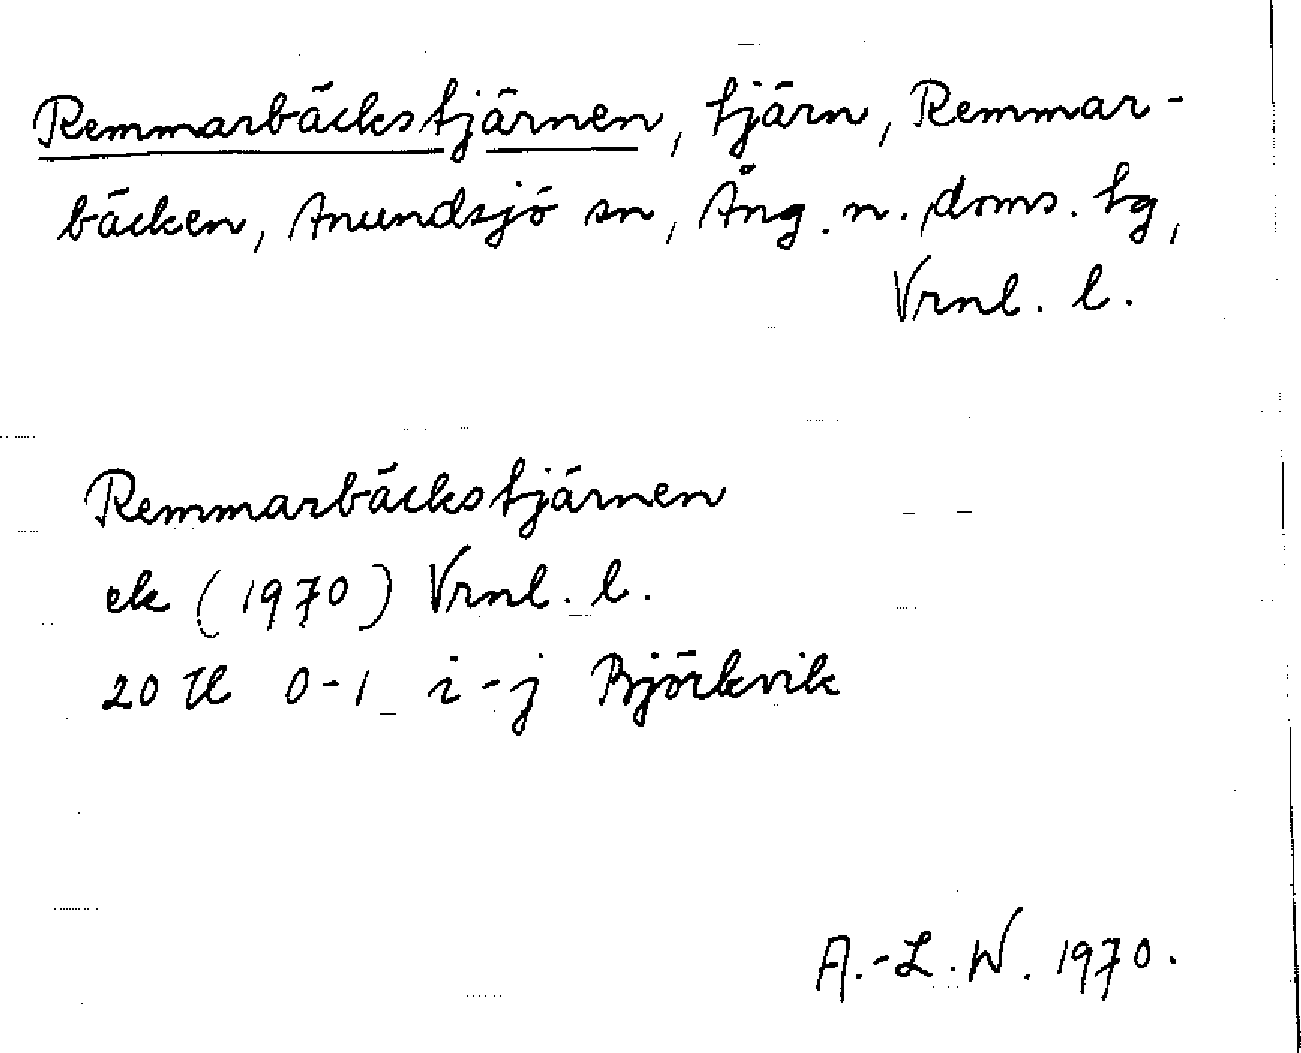 Remmarbäckstjärnen, tjärn, Remmar-
bäcken, Anundsjö sn, Ång. n. doms. tg,
Vrnl. l.
Remmarbäckstjärnen
ek (1970) Vrnl. l.
20 I 0-1 i-j Björkvik
A.-L. W. 1970.